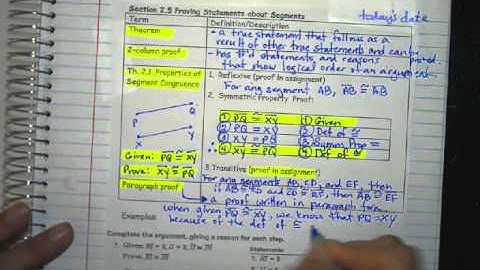 Section 2.5 Proving Statements about Segments
today's date
Term
Definition/Description
Theorem
- a true statement that follows as a
result of other true statements and can be
2-column proof
- has #'d statements and reasons
that show logical order of an argument.
Th. 2.1 Properties of
Segment Congruence
1. Reflexive (proof in assignment)
For any segment AB, AB ≅ AB
2. Symmetric Property Proof:
① PQ ≅ XY ① Given
② PQ = XY ② Def of ≅
③ XY = PQ ③ Symm. Prop =
∴ ④ XY ≅ PQ ④ Def of ≅
P
Q
X
Y
Given: PQ ≅ XY
Prove: XY ≅ PQ
3. Transitive (proof in assignment)
For any segments AB, CD, and EF, then
if AB ≅ CD and CD ≅ EF, then AB ≅ EF
Paragraph proof
a proof written in paragraph form
when given PQ ≅ XY, we know that PQ = XY
because of the def of ≅
Examples:
Complete the argument, giving a reason for each step.
Statements